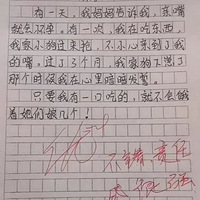 有一天，我妈妈告诉我，亲嘴
就会怀孕。有一次，我在吃东西，
我家小狗过来抢，不小心亲到了我
的嘴。过了3个月，我家狗下崽了
那个时候我在心里暗暗发誓，
只要我有一口吃的，就不会饿
着她们娘几个！
不错 责任
感很强